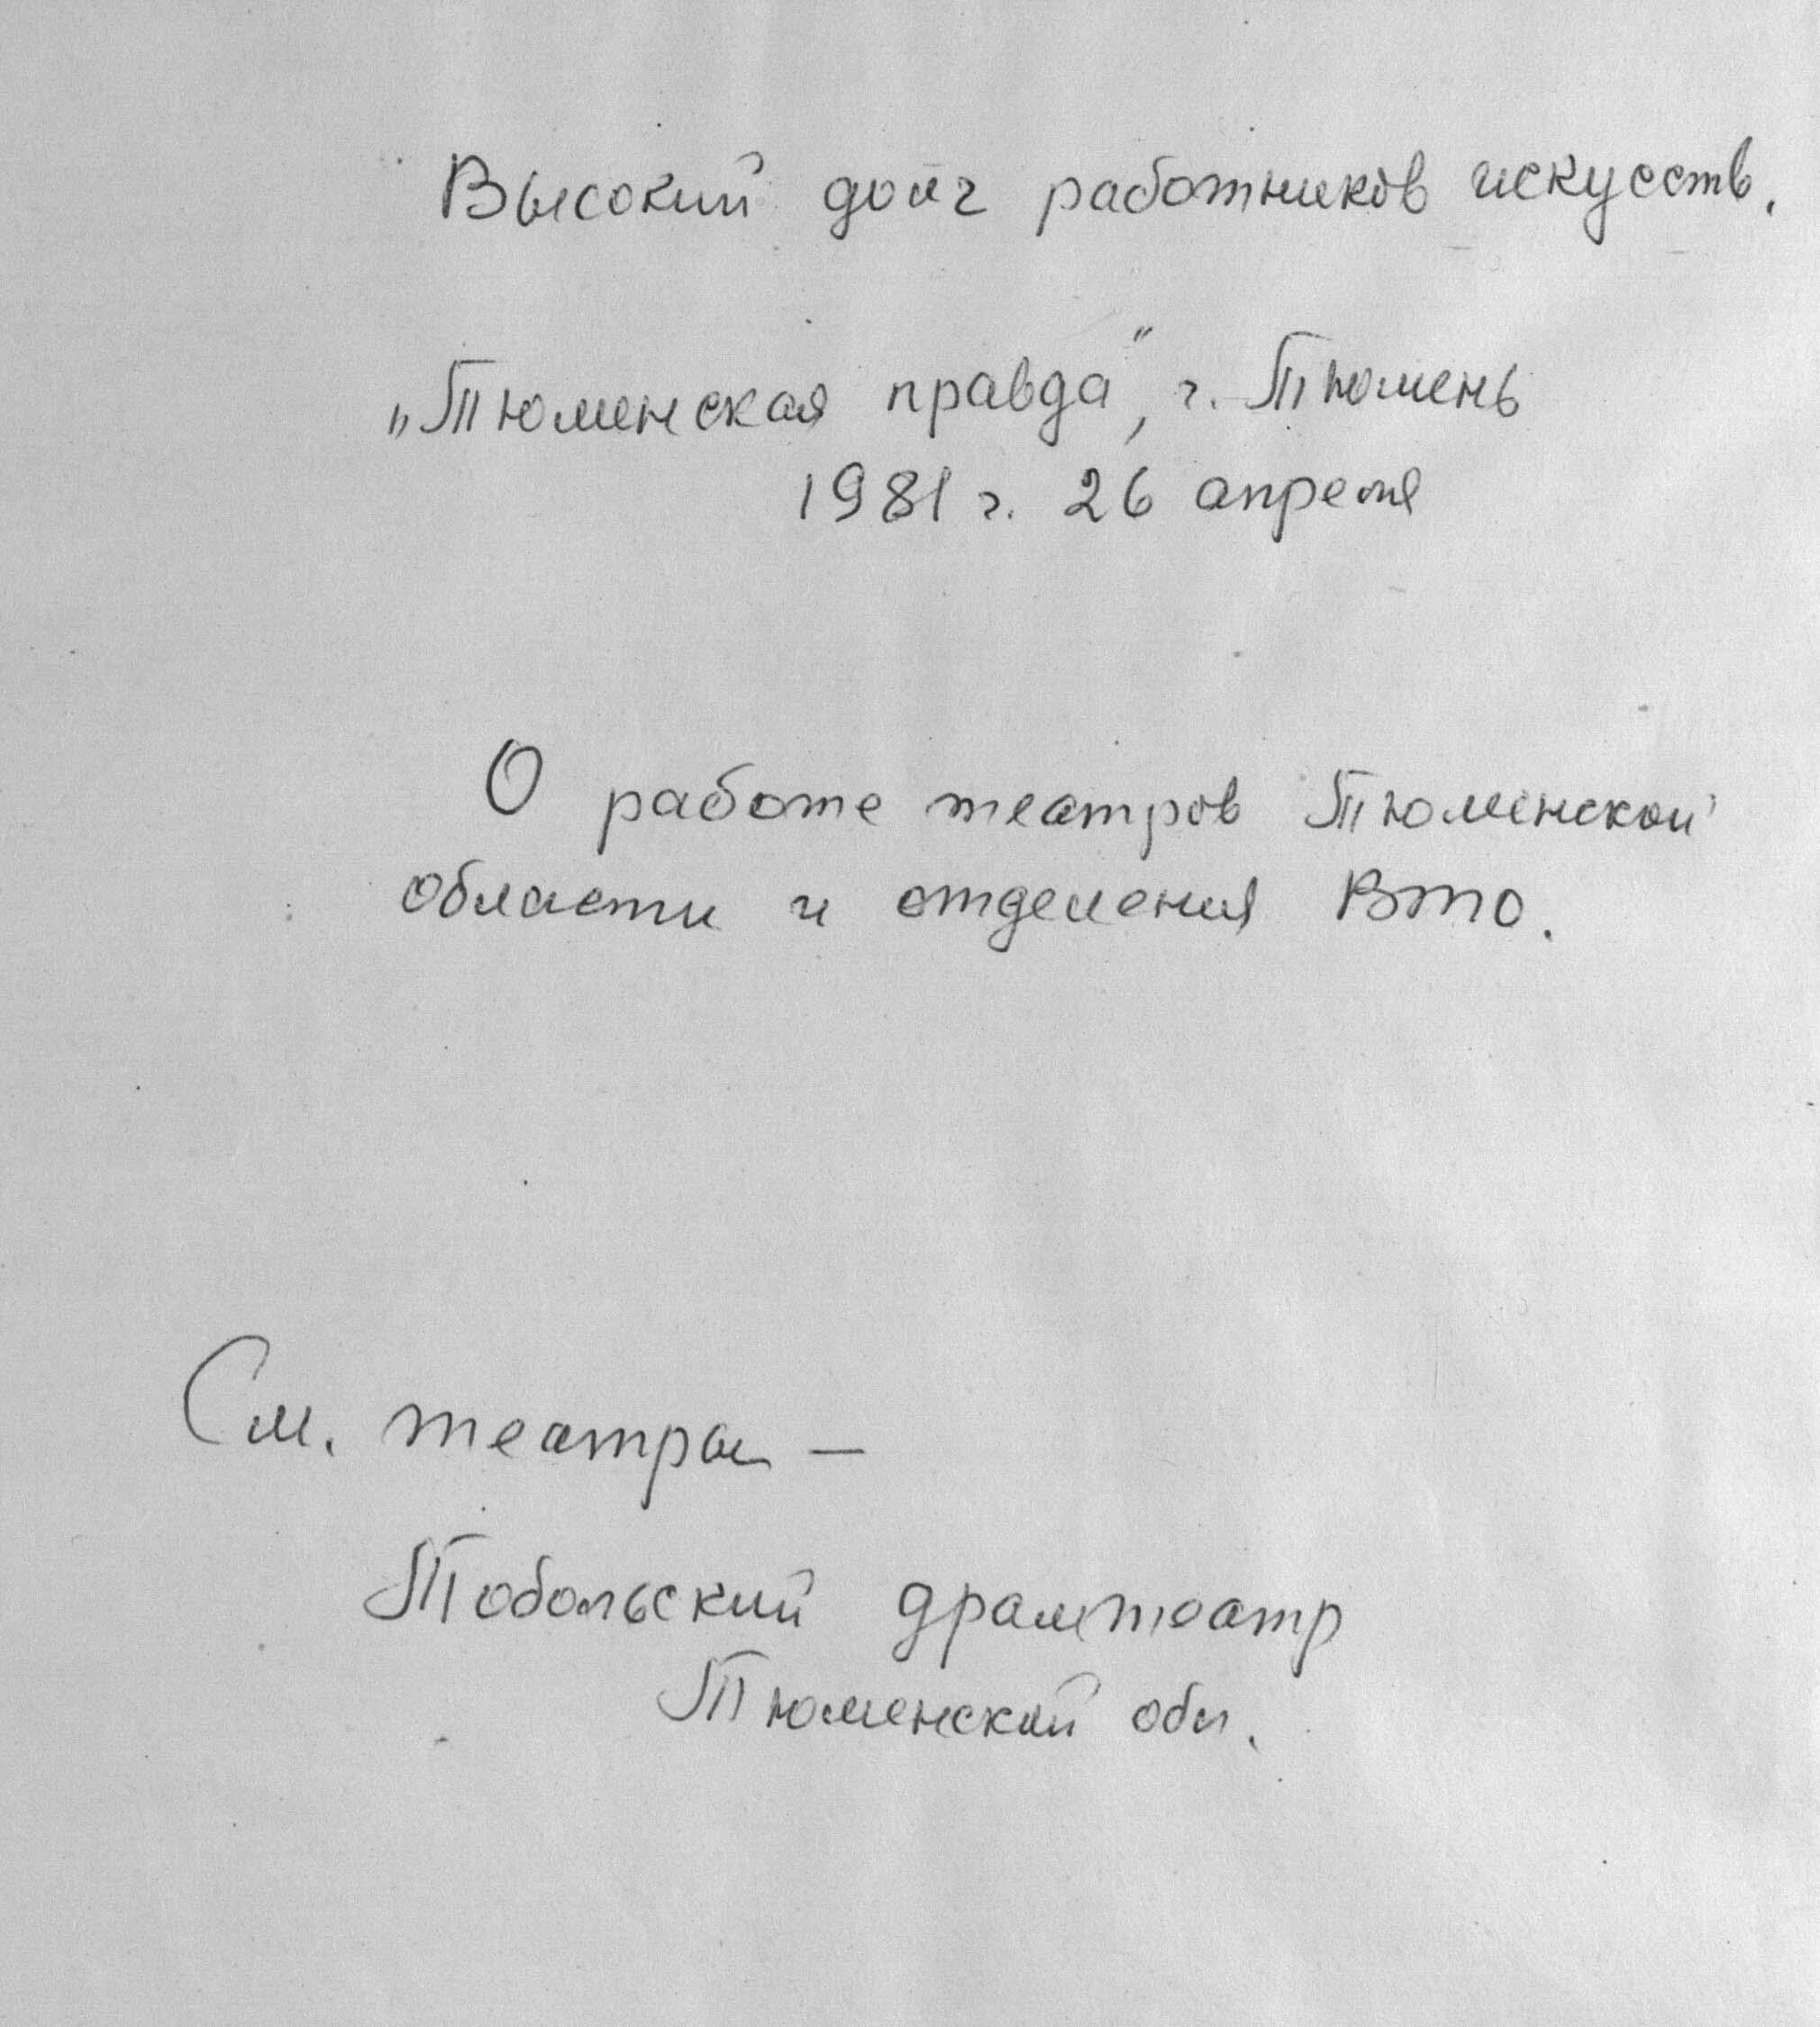 Высокий долг работников искусств.
„Тюменская правда", г. Тюмень
1981 г. 26 апреля
О работе театров Тюменской
области и отделения ВТО.
См. театры –
Тобольский драмтеатр
Тюменской обл.